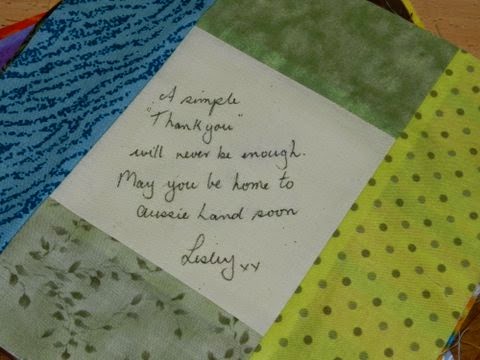 A simple
"Thankyou"
will never be enough.
May you be home to
aussie Land soon
Lesley xx